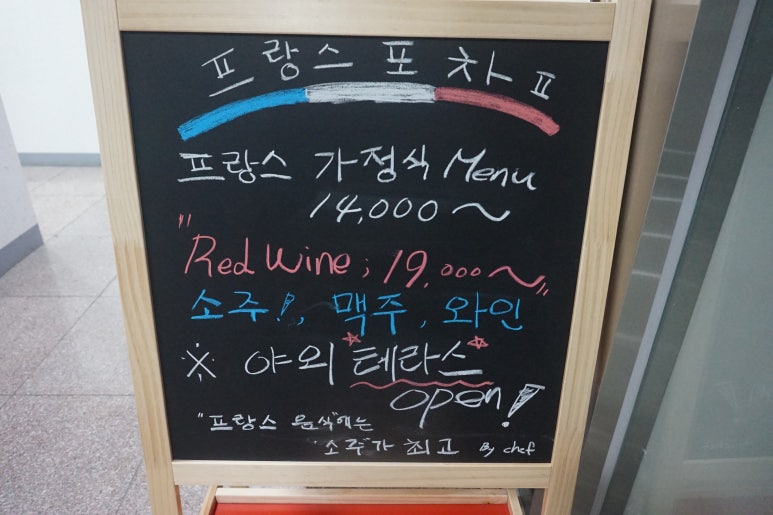 프랑스포차 ㅍ
프랑스 가정식 Menu
14,000~
"Red Wine; 19,000~"
소주!, 맥주, 와인
※ 야외 *테라스*
open!
"프랑스 음식"에는
"소주"가 최고 By chef